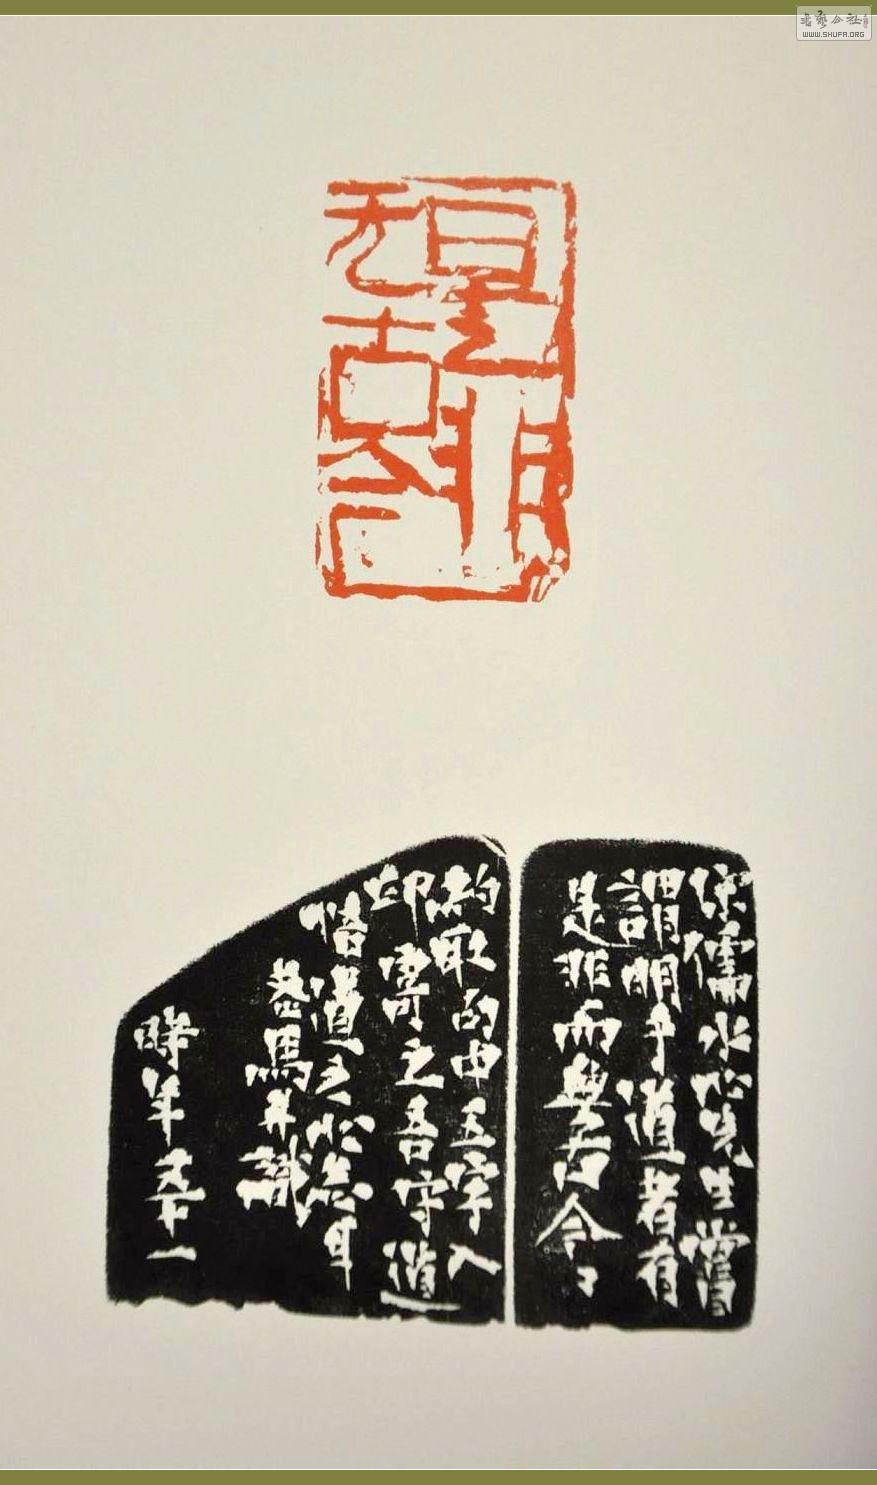 書藝公社
WWW.SHUFA.ORG
是非
无古今
宋儒水心先生嘗
謂明乎道者有
是非而無古今
約取句中五字入
印寄之吾守道
悟道之心志耳
馬并識
時年五十一